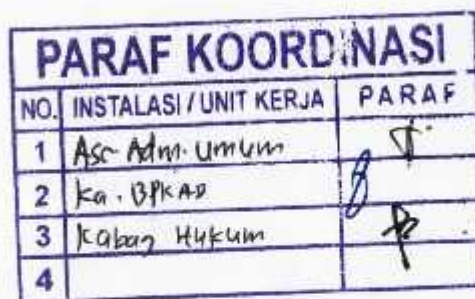 PARAF KOORDINASI
NO. INSTALASI / UNIT KERJA PARAF
1 Asr Adm. Umum
2 Ka. BPKAD
3 Kabag Hukum
4